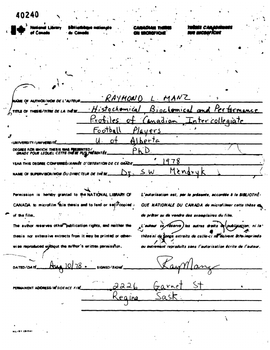 40240
National Library of Canada
Bibliothèque nationale du Canada
CANADIAN THESES ON MICROFICHE
THÈSES CANADIENNES SUR MICROFICHE
NAME OF AUTHOR/NOM DE L'AUTEUR RAYMOND L MANZ
TITLE OF THESIS/TITRE DE LA THÈSE Histochemical Biochemical and Performance
Profiles of Canadian Intercollegiate
Football Players
UNIVERSITY/UNIVERSITÉ U of Alberta
DEGREE FOR WHICH THESIS WAS PRESENTED/
GRADE POUR LEQUEL CETTE THÈSE FUT PRÉSENTÉE PhD
YEAR THIS DEGREE CONFERRED/ANNÉE D'OBTENTION DE CE GRADE 1978
NAME OF SUPERVISOR/NOM DU DIRECTEUR DE THÈSE Dr. S.W. Mendryk
Permission is hereby granted to the NATIONAL LIBRARY OF
CANADA to microfilm this thesis and to lend or sell copies
of the film.
The author reserves other publication rights, and neither the
thesis nor extensive extracts from it may be printed or other-
wise reproduced without the author's written permission.
L'autorisation est, par la présente, accordée à la BIBLIOTHÈ-
QUE NATIONALE DU CANADA de microfilmer cette thèse et de
prêter ou de vendre des exemplaires du film.
L'auteur se réserve les autres droits de publication, ni la
thèse ni de longs extraits de celle-ci ne doivent être imprimés
ou autrement reproduits sans l'autorisation écrite de l'auteur.
DATED/DATÉ Aug 10/78 SIGNED/SIGNÉ Ray Manz
PERMANENT ADDRESS/RÉSIDENCE FIXE 2226 Garnet St
Regina Sask